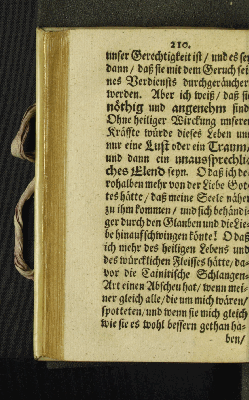 210.
unser Gerechtigkeit ist / und es sey
dann / daß sie mit dem Geruch sei-
nes Verdiensts durchgeräuchert
werden. Aber ich weiß / daß sie
nöthig und angenehm sind
Ohne heiliger Wirckung unserer
Kräffte würde dieses Leben uns
nur eine Lust oder ein Traum /
und dann ein unaussprechli-
ches Elend seyn. O daß ich de-
rohalben mehr von der Liebe Got-
tes hätte / daß meine Seele näher
zu ihm kommen / und sich behändi-
ger durch den Glauben und die Lie-
be hinauf schwingen könte! O daß
ich mehr des heiligen Lebens und
des würcklichen Fleisses hätte / da-
vor die Cainitische Schlangen-
Art einen Abscheu hat / wenn mei-
ner gleich alle / die um mich wären /
spotteten / und wenn sie mich gleich
wie sie es wohl bessern gethan ha-
ben /